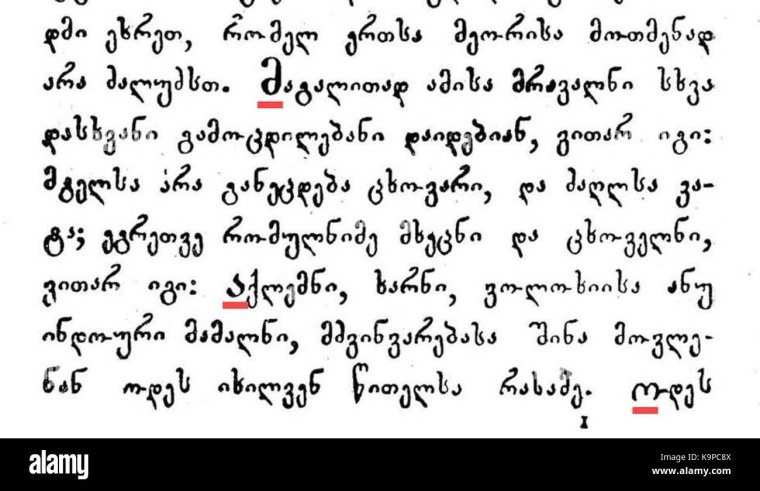 დმი ესრეთ, რომელ ერთსა მეორისა მოთმენად
არა ძალუძსთ. მაგალითად ამისა მრავალნი სხვა
დასხვანი გამოცდილებანი დაიდებიან, ვითარ იგი:
მგელსა არა განეცდება ცხოვარი, და ძაღლსა კა-
ტა; ეგრეთვე რომულნიმე მხეცნი და ცხოველნი,
ვითარ იგი: აქლემნი, ხარნი, ვოლოხიისა ანუ
ინდოური მამალნი, მძვინვარებასა შინა მოვლე-
ნან ოდეს იხილვენ წითელსა რასამე. ოდეს
I
alamy
K9PC8X
www.alamy.com